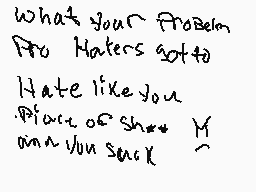 what your ProBelm
Pro Haters got to
Hate like you
Piace of Sh**
and you suck